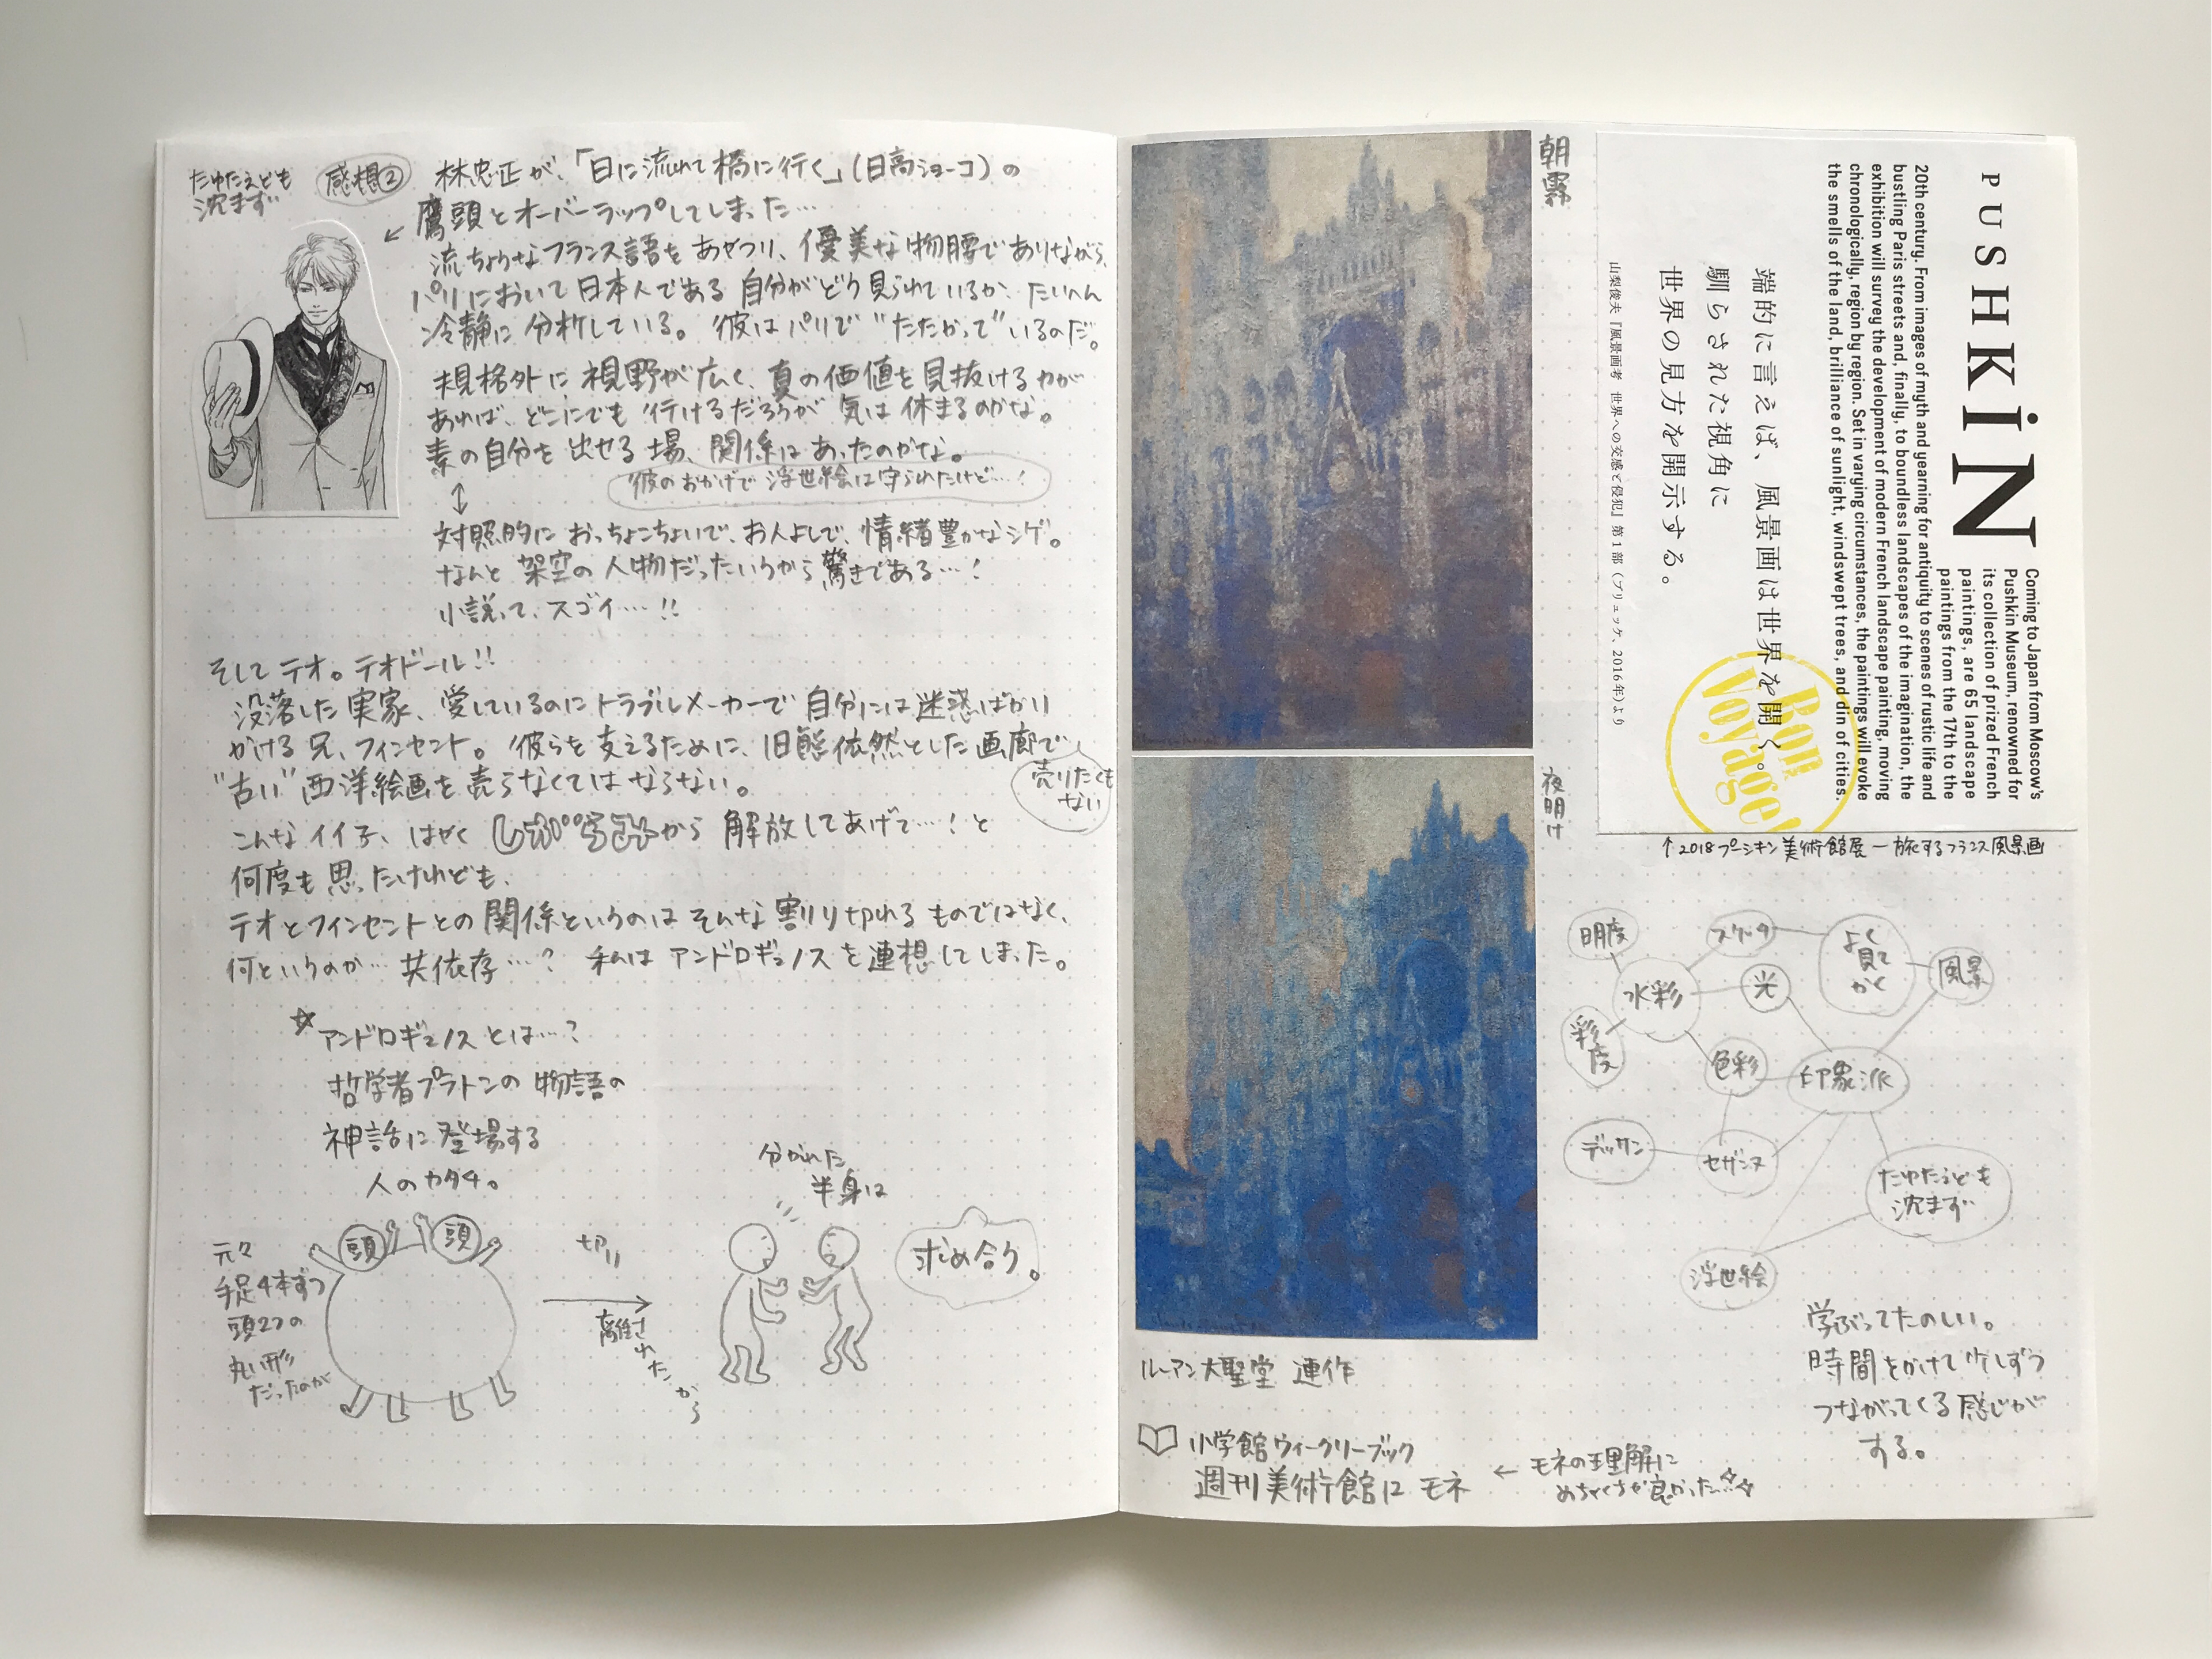 たゆたえども
沈まず
感想②
林忠正が、「日に流れて橋に行く」(日高ショーコ)の
鷹頭とオーバーラップしてしまった…
流ちょうなフランス語をあやつり、優美な物腰でありながら、
パリにおいて日本人である自分がどう見られているか、たいへん
冷静に分析している。彼はパリで"たたかって"いるのだ。
規格外に視野が広く、真の価値を見抜ける力が
あれば、どこにでも行けるだろうが気は休まるのかな。
素の自分を出せる場、関係はあったのかな。
彼のおかげで浮世絵は守られたけど…!
対照的におっちょこちょいで、お人よしで、情緒豊かなシゲ。
なんと架空の人物だったいうから驚きである…!
小説って、スゴイ…!!
そしてテオ。テオドール!!
没落した実家、愛しているのにトラブルメーカーで自分には迷惑ばかり
かける兄、フィンセント。彼らを支えるために、旧態依然とした画廊で
"古い"西洋絵画を売らなくてはならない。
売りたくも
ない
こんなイイ子、はやく から解放してあげて…!と
何度も思ったけれども、
テオとフィンセントとの関係というのはそんな割り切れるものではなく、
何というのか…共依存…? 私はアンドロギュノスを連想してしまった。
アンドロギュノスとは…?
哲学者プラトンの物語の
神話に登場する
人のカタチ。
元々
手足4本ずつ
頭2つの
丸い形
だったのが
頭
頭
切り
離されたから
分かれた
半身は
求め合う。
朝霧
夜明け
ルーアン大聖堂 連作
小学館ウィークリーブック
週刊美術館12 モネ
← モネの理解に
めちゃくちゃ良かった…
PUSHKIN
Coming to Japan from Moscow's
Pushkin Museum, renowned for
its collection of prized French
paintings, are 65 landscape
paintings from the 17th to the
20th century. From images of myth and yearning for antiquity to scenes of rustic life and
bustling Paris streets and, finally, to boundless landscapes of the imagination, the
exhibition will survey the development of modern French landscape painting, moving
chronologically, region by region. Set in varying circumstances, the paintings will evoke
the smells of the land, brilliance of sunlight, windswept trees, and din of cities.
端的に言えば、風景画は世界を開く。
馴らされた視角に
世界の見方を開示する。
山梨俊夫『風景画考 世界への交感と侵犯』第1部(ブリュッケ、2016年)より
Bon
Voyage!
↑2018プーシキン美術館展—旅するフランス風景画
明度
スケッチ
よく
見て
かく
風景
水彩
光
彩度
色彩
印象派
デッサン
セザンヌ
たゆたえども
沈まず
浮世絵
学ぶってたのしい。
時間をかけて少しずつ
つながってくる感じが
する。